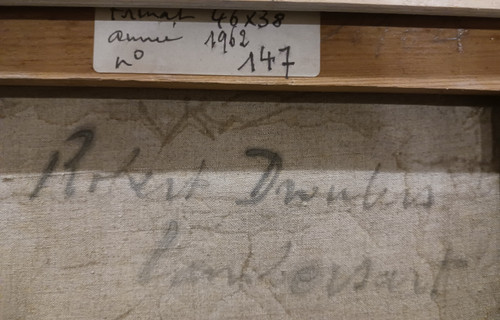 format 46x38
année 1962
n° 147
Robert Droulers
Lambersart